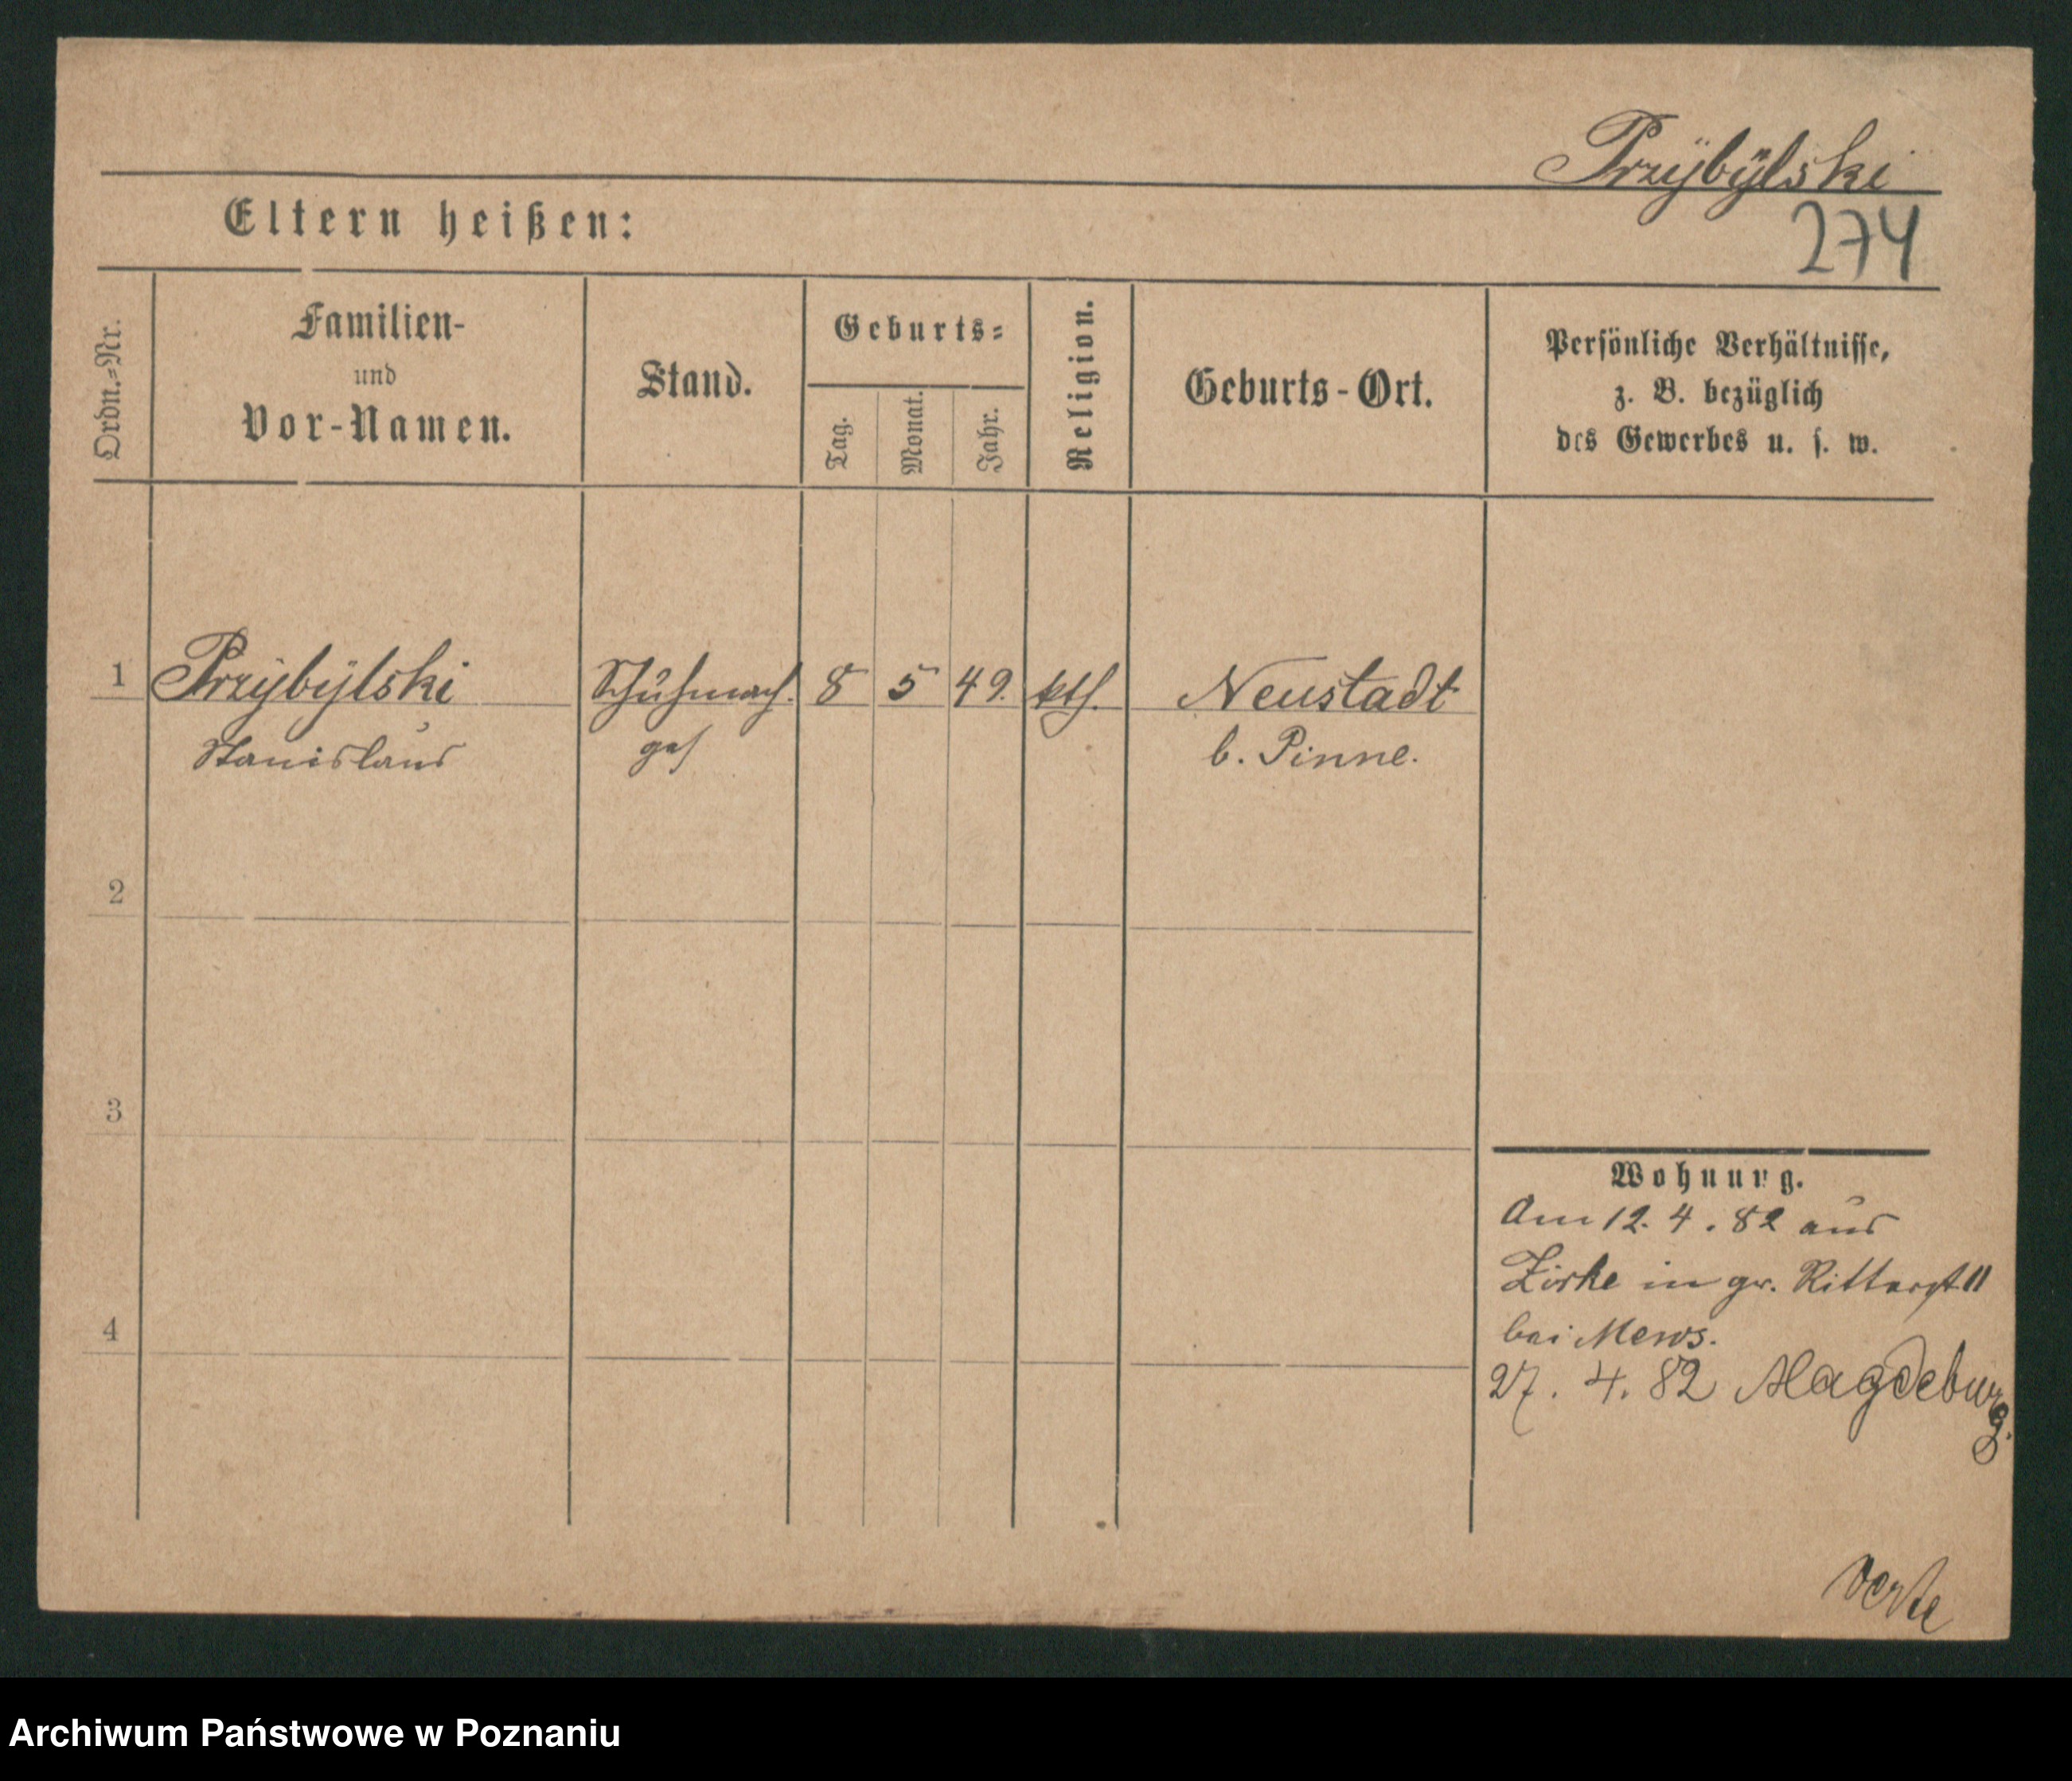 Przÿbÿlski
274
Eltern heißen:
Ordn.=Nr.
Familien-
und
Vor-Namen.
Stand.
Geburts=
Tag.
Monat.
Jahr.
Religion.
Geburts-Ort.
Persönliche Verhältnisse,
z. B. bezüglich
des Gewerbes u. s. w.
1 Przÿbÿlski Schuhmach. 8 5 49. kth. Neustadt
Stanislaus ges b. Pinne.
2
3
4
Wohnung.
Am 12. 4. 82 aus
Zirke in gr. Ritterst. 11
bei Mews.
27. 4. 82 Magdeburg.
verte
Archiwum Państwowe w Poznaniu